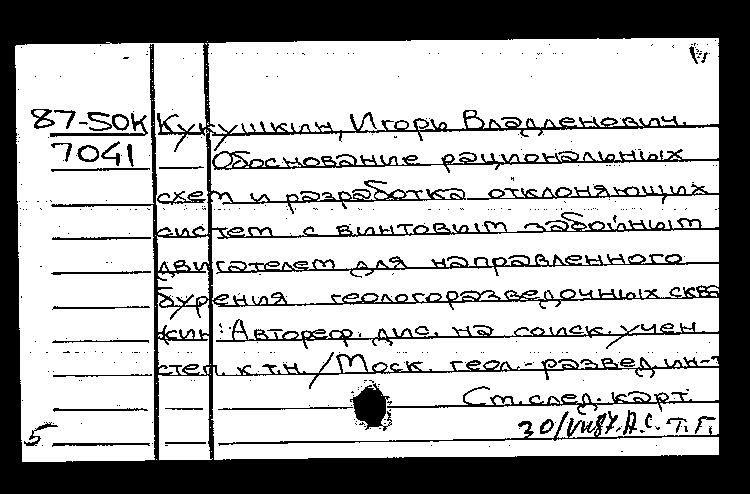 87-50К Кукушкин, Игорь Владленович.
7041 Обоснование рациональных
схем и разработка отклоняющих
систем с винтовым забойным
двигателем для направленного
бурения геологоразведочных сква
жин: Автореф. дис. на соиск. учен.
степ. к.т.н. / Моск. геол.-развед. ин-т
Ст. след. карт.
5 30/VII87. А.С. Т.Г.